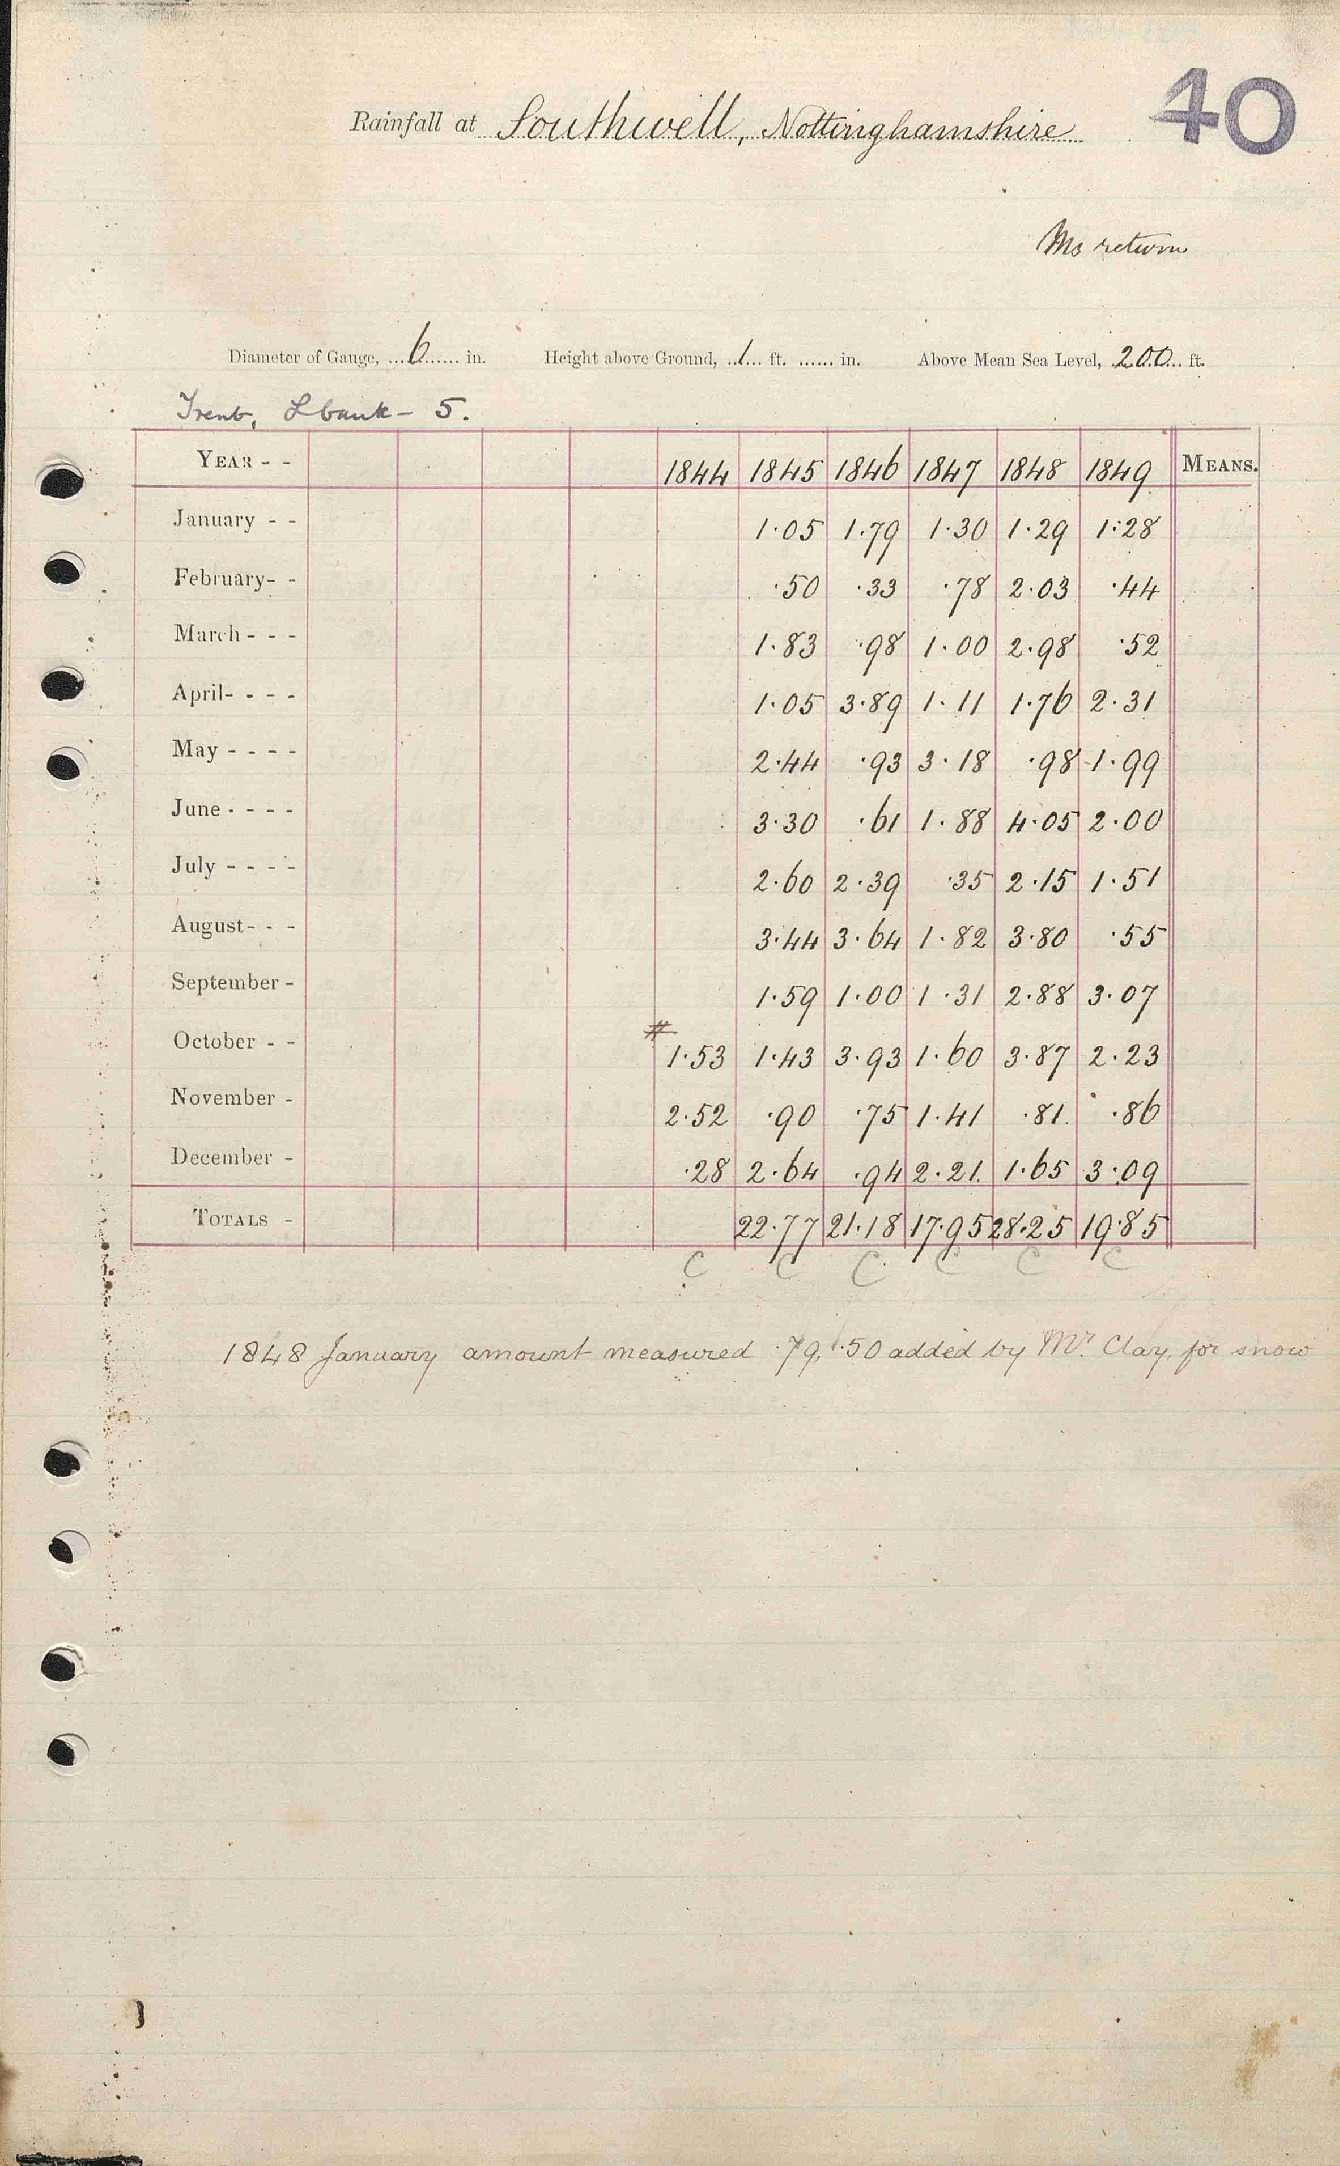 40
Rainfall at Southwell, Nottinghamshire
Ms return
Diameter of Gauge, ...6...... in. Height above Ground, ..1... ft. ...... in. Above Mean Sea Level, .200... ft.
Trent, L bank - 5.
YEAR - - 1844 1845 1846 1847 1848 1849 MEANS.
January - - 1·05 1·79 1·30 1·29 1·28
February- - ·50 ·33 ·78 2·03 ·44
March - - - 1·83 ·98 1·00 2·98 ·52
April- - - - 1·05 3·89 1·11 1·76 2·31
May - - - - 2·44 ·93 3·18 ·98 1·99
June - - - - 3·30 ·61 1·88 4·05 2·00
July - - - - 2·60 2·39 ·35 2·15 1·51
August- - - 3·44 3·64 1·82 3·80 ·55
September - 1·59 1·00 1·31 2·88 3·07
#
October - - 1·53 1·43 3·93 1·60 3·87 2·23
November - 2·52 ·90 ·75 1·41 ·81 ·86
December - ·28 2·64 ·94 2·21 1·65 3·09
TOTALS - 22·77 21·18 17·95 28·25 19·85
C C C C C C
1848 January amount measured ·79, ·50 added by Mr. Clay, for snow